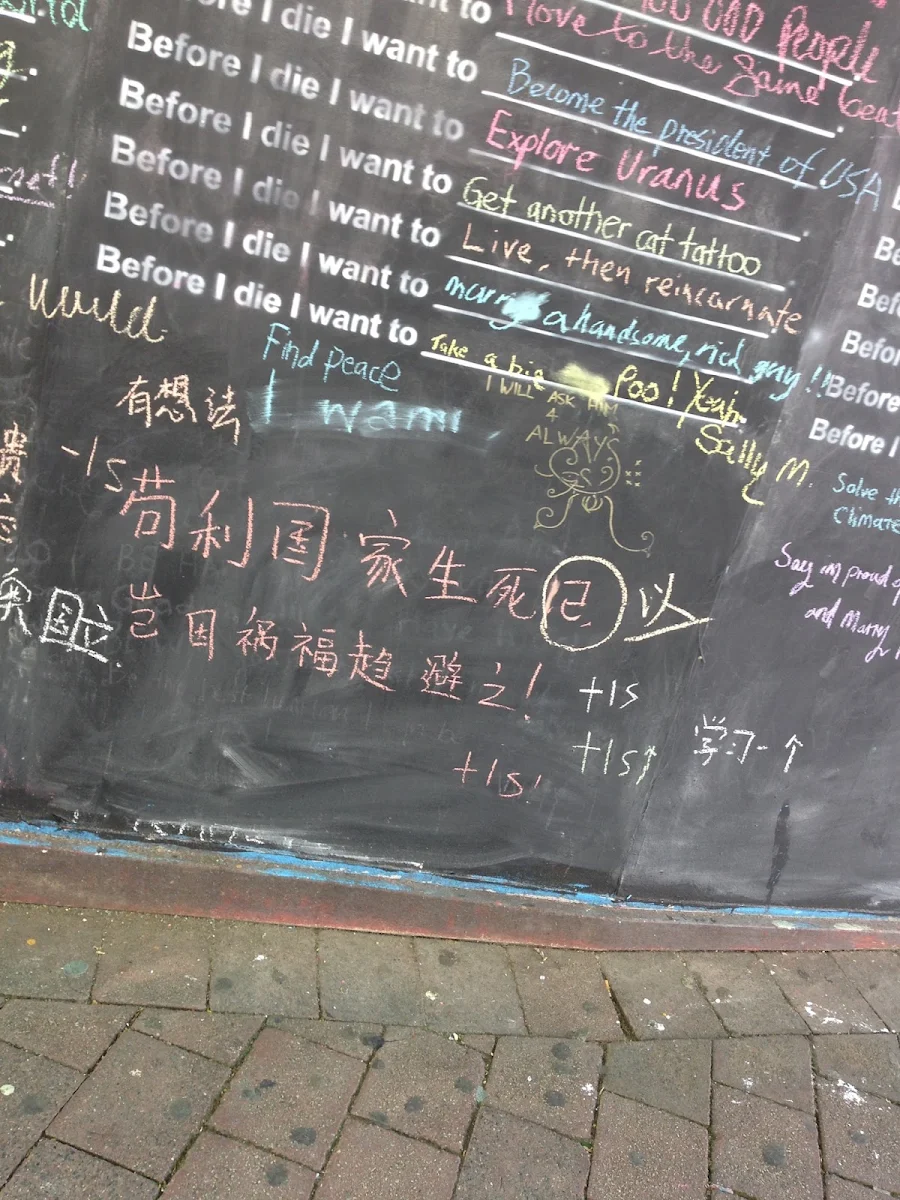 to
100 000 People
Before I die I want to move to the same
Before I die I want to Become the president of USA
Before I die I want to Explore Uranus
Before I die I want to Get another cat tattoo
Before I die I want to Live, then reincarnate
Before I die I want to marry a handsome, rich guy!!
Before I die I want to Take a big Poo! Yeah.
Sally M.
World
Find peace
I want
I WILL
ASK HIM
4
ALWAYS
有想法
-1s
贵
苟利国家生死已以
岂因祸福趋避之!
国立
+1s
+1s
学习一个
+1s!
Before I
Before I
Solve th
Climate
Say im proud of
and Marry